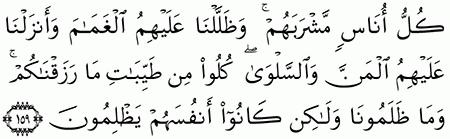 كُلُّ أُنَاسٍ مَّشْرَبَهُمْ ۚ وَظَلَّلْنَا عَلَيْهِمُ الْغَمَامَ وَأَنزَلْنَا
عَلَيْهِمُ الْمَنَّ وَالسَّلْوَىٰ ۖ كُلُوا مِن طَيِّبَاتِ مَا رَزَقْنَاكُمْ ۚ
وَمَا ظَلَمُونَا وَلَٰكِن كَانُوٓا أَنفُسَهُمْ يَظْلِمُونَ ﴿١٥٩﴾